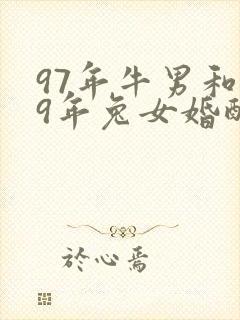 97年牛男和
9年兔女婚配
於心焉